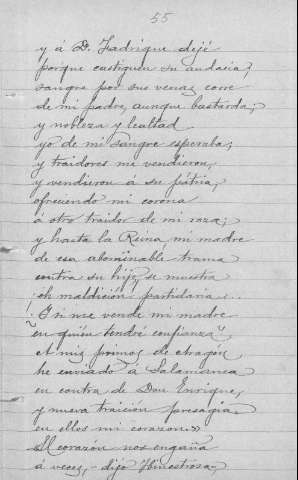 55
y á D. Fadrique dejé
porque castiguen su audacia,
sangre por sus venas corre
de mi padre, aunque bastarda;
y nobleza y lealtad
yo de mi sangre esperaba;
y traidores me vendieron,
y vendieron á su pátria,
ofreciendo mi corona
á otro traidor de mi raza;
y hasta la Reina, mi madre
de esa abominable trama
contra su hijo, se muestra
¡oh maldición! partidaria...
¡Si me vende mi madre
en quién tendré confianza?
A mis primos de Aragón
he enviado á Salamanca
en contra de Don Enrique,
y nueva traición presagia
en ellos mi corazon.»
El corazón nos engaña
á veces, - dijo Hinestrosa,